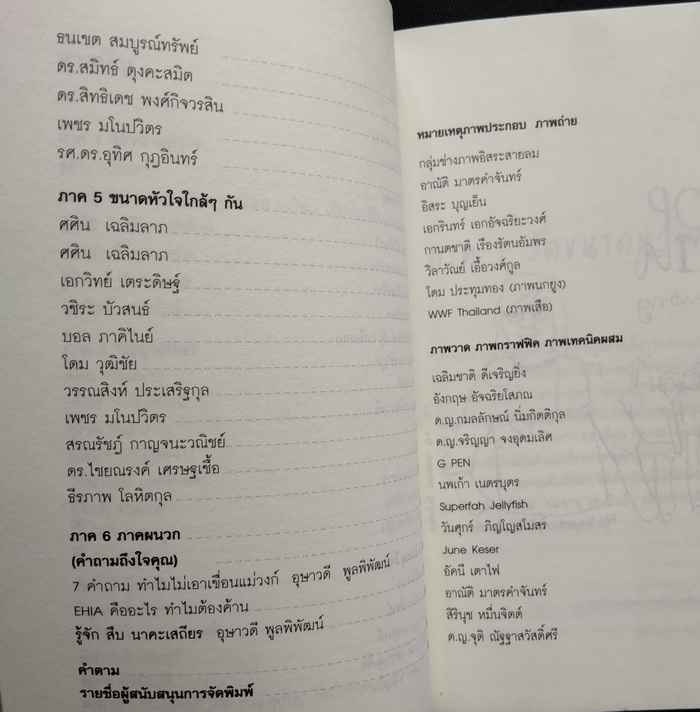 ธนเขต สมบูรณ์ทรัพย์
ดร.สมิทธ์ ตุงคะสมิต
ดร.สิทธิเดช พงศ์กิจวรสิน
เพชร มโนปวิตร
รศ.ดร.อุทิศ กุฎอินทร์
ภาค 5 ขนาดหัวใจใกล้ๆ กัน
ศศิน เฉลิมลาภ
ศศิน เฉลิมลาภ
เอกวิทย์ เตระดิษฐ์
วชิระ บัวสนธ์
บอล ภาคิไนย์
โดม วุฒิชัย
วรรณสิงห์ ประเสริฐกุล
เพชร มโนปวิตร
สรณรัชฎ์ กาญจนะวณิชย์
ดร.ไชยณรงค์ เศรษฐเชื้อ
ธีรภาพ โลหิตกุล
ภาค 6 ภาคผนวก
(คำถามถึงใจคุณ)
7 คำถาม ทำไมไม่เอาเขื่อนแม่วงก์ อุษาวดี พูลพิพัฒน์
EHIA คืออะไร ทำไมต้องค้าน
รู้จัก สืบ นาคะเสถียร อุษาวดี พูลพิพัฒน์
คำตาม
รายชื่อผู้สนับสนุนการจัดพิมพ์
หมายเหตุภาพประกอบ ภาพถ่าย
กลุ่มช่างภาพอิสระสายลม
อาณัติ มาตรคำจันทร์
อิสระ บุญเย็น
เอกรินทร์ เอกอัจฉริยะวงศ์
กานตชาติ เรืองรัตนอัมพร
วิลาวัณย์ เอื้อวงศ์กูล
โดม ประทุมทอง (ภาพนกยูง)
WWF Thailand (ภาพเสือ)
ภาพวาด ภาพกราฟฟิค ภาพเทคนิคผสม
เฉลิมชาติ ดีเจริญยิ่ง
อังกฤษ อัจฉริยโสภณ
ด.ญ.กมลลักษณ์ นิ่มกิตติกุล
ด.ญ.จริญญา จงอุดมเลิศ
G PEN
นพเก้า เนตรบุตร
Superfah Jellyfish
วันศุกร์ ภิญโญสโมสร
June Keser
อัคนี เตาไฟ
อาณัติ มาตรคำจันทร์
สิรินุช หมื่นจิตต์
ด.ญ.จุติ ณัฐฐาสวัสดิ์ศรี